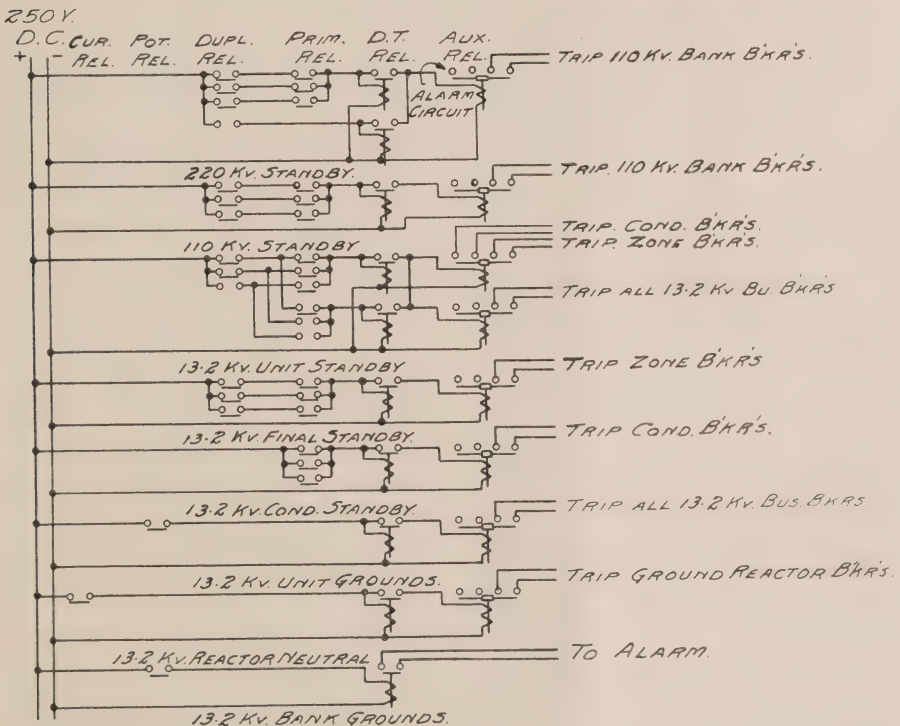 250 V.
D.C. CUR. POT. DUPL. PRIM. D.T. AUX.
+ - REL. REL. REL. REL. REL. REL.
TRIP 110 KV. BANK B'KR'S.
ALARM
CIRCUIT
220 KV. STANDBY.
TRIP. 110 KV. BANK B'KR'S.
110 KV. STANDBY
TRIP. COND. B'KR'S.
TRIP. ZONE B'KR'S.
TRIP ALL 13·2 KV BU. B'KRS
13·2 KV. UNIT STANDBY
TRIP ZONE B'KR'S
13·2 KV. FINAL STANDBY.
TRIP COND. B'KR'S.
13·2 KV. COND. STANDBY.
TRIP ALL 13·2 KV. BUS. BKRS
13·2 KV. UNIT GROUNDS.
TRIP GROUND REACTOR B'KR'S.
13·2 KV. REACTOR NEUTRAL
TO ALARM.
13·2 KV. BANK GROUNDS.